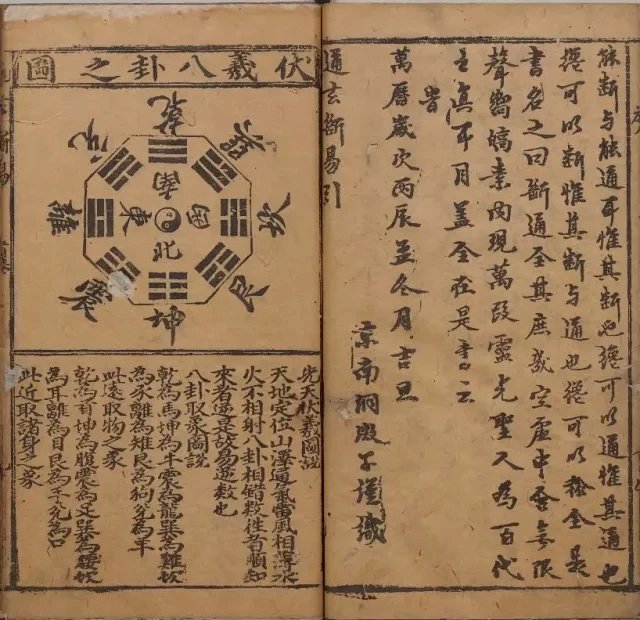 能斷与能通耳惟其斷也纔可以通惟其通也
纔可以斷惟其斷与通也纔可以稱全是
書名之曰斷通全其庶幾空虛中含無限
聲響業內現萬段靈光聖人為百代
真耳目蓋全在是書云
旹
萬曆歲次丙辰孟冬月吉旦
京南洞子謹識
通玄斷易引
伏羲八卦之圖
乾
兌
巽
離
坎
震
艮
坤
南
東
西
北
先天伏羲圖說
天地定位山澤通氣雷風相薄水
火不相射八卦相錯數徃者順知
來者逆是故易逆數也
八卦取象圖說
乾為馬坤為牛震為龍巽為雞坎
為豕離為雉艮為狗兌為羊
此遠取物之象
乾為首坤為腹震為足巽為坎
為耳離為目艮為手兌為口
此近取諸身之象